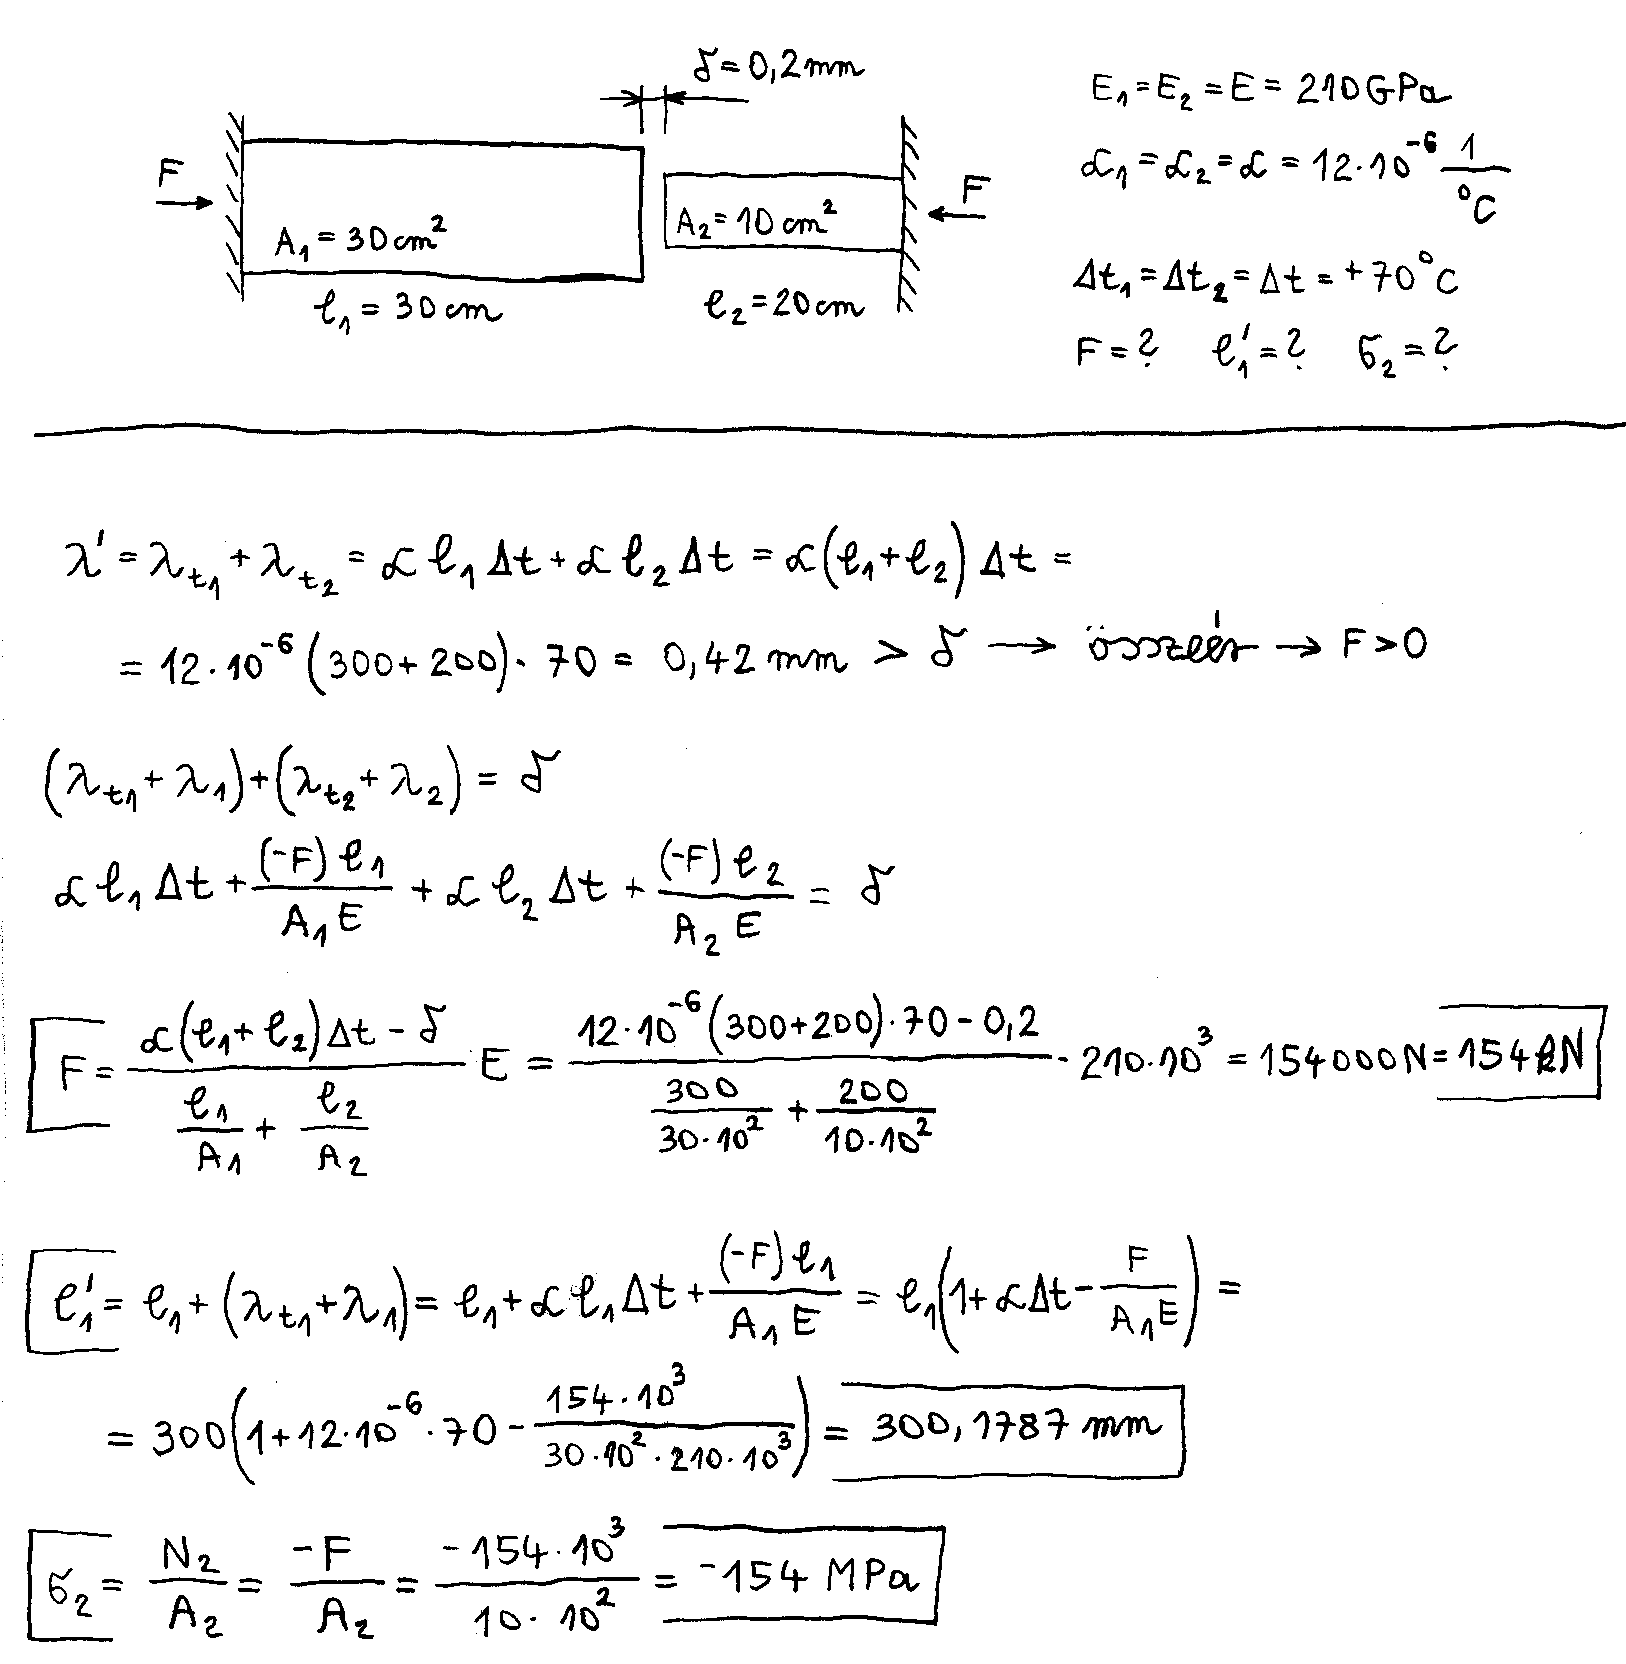 δ = 0,2 mm
E₁ = E₂ = E = 210 GPa
α₁ = α₂ = α = 12·10⁻⁶ 1/°C
F
A₁ = 30 cm²
A₂ = 10 cm²
F
l₁ = 30 cm
l₂ = 20 cm
Δt₁ = Δt₂ = Δt = +70 °C
F = ? l₁' = ? σ₂ = ?
λ' = λt₁ + λt₂ = α l₁ Δt + α l₂ Δt = α(l₁+l₂) Δt =
= 12·10⁻⁶ (300+200)·70 = 0,42 mm > δ → összeér → F > 0
(λt₁ + λ₁) + (λt₂ + λ₂) = δ
α l₁ Δt + (-F) l₁ / A₁ E + α l₂ Δt + (-F) l₂ / A₂ E = δ
F = (α(l₁+l₂)Δt - δ) / (l₁/A₁ + l₂/A₂) E = (12·10⁻⁶ (300+200)·70 - 0,2) / (300/(30·10²) + 200/(10·10²)) · 210·10³ = 154000 N = 154 kN
l₁' = l₁ + (λt₁ + λ₁) = l₁ + α l₁ Δt + (-F) l₁ / A₁ E = l₁(1 + αΔt - F / A₁E) =
= 300(1 + 12·10⁻⁶·70 - 154·10³ / (30·10²·210·10³)) = 300,1787 mm
σ₂ = N₂/A₂ = -F/A₂ = -154·10³ / (10·10²) = -154 MPa